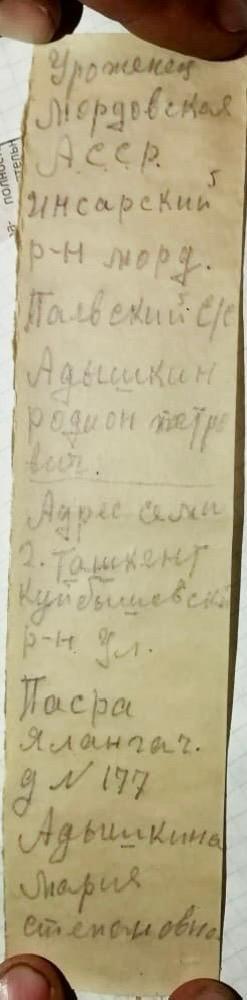 Уроженец
Мордовская
А.С.С.Р.
Инсарский
р-н морд.
Паевский с/с
Адышкин
Родион петро
вич.
Адрес семи
г. Ташкент
Куйбышевский
р-н Ул.
Пасра
Ялангач.
д N 177
Адышкина
мария
степановна